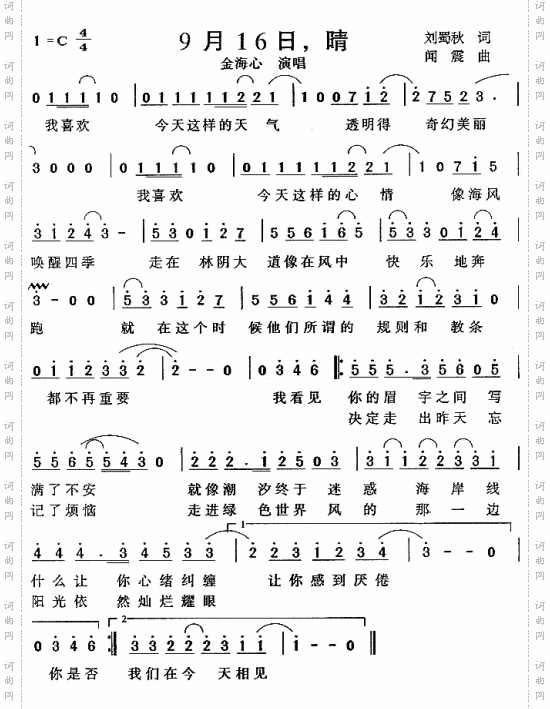 1=C 4/4
9月16日，晴
刘蜀秋 词
闻震 曲
金海心 演唱
0 1 1 1 1 0 | 0 1 1 1 1 1 2 2 1 | 1 0 0 7 1 2 | 2 7 5 2 3 .
我喜欢 今天这样的天 气 透明得 奇幻美丽
3 0 0 0 | 0 1 1 1 1 0 | 0 1 1 1 1 1 2 2 1 | 1 0 7 1 5
我喜欢 今天这样的心 情 像海风
3 1 2 4 3 - | 5 5 3 0 1 2 7 | 5 5 6 1 6 5 | 5 3 3 0 1 2 4
唤醒四季 走在 林阴大 道像在风中 快 乐 地奔
3 - 0 0 | 5 3 3 1 2 7 | 5 5 6 1 4 4 | 3 2 1 2 3 1 0
跑 就 在这个时 候他们所谓的 规则和 教条
0 1 1 2 3 3 2 | 2 - - 0 | 0 3 4 6 5 5 5 . 3 5 6 0 5
都不再重要 我看见 你的眉 宇之间 写
决定走 出昨天 忘
5 5 6 5 5 4 3 0 | 2 2 2 . 1 2 5 0 3 | 3 1 1 2 2 3 3 1
满了不安 就像潮 汐终于 迷 惑 海 岸 线
记了烦恼 走进绿 色世界 风 的 那 一 边
1
4 4 . 3 4 5 3 3 2 2 3 1 2 3 4 3 - 0 0
什么让 你心绪纠缠 让你感到厌倦
阳光依 然灿烂耀眼
2
0 3 4 6 3 3 2 2 2 3 1 1 1 - - 0
你是否 我们在今 天相见
词曲网
词曲网
词曲网
词曲网
词曲网
词曲网
词曲网
词曲网
词曲网
词曲网
词曲网
词曲网